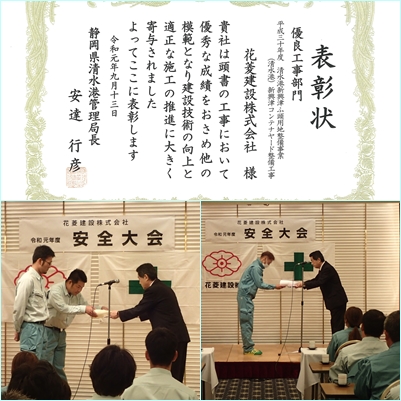 表彰状
優良工事部門
平成三十年度 清水港新興津ふ頭用地整備事業
(清水港)新興津コンテナヤード整備工事
花菱建設株式会社 様
貴社は頭書の工事において
優秀な成績をおさめ他の
模範となり建設技術の向上と
適正な施工の推進に大きく
寄与されました
よってここに表彰します
令和元年九月十三日
静岡県清水港管理局長
安達 行彦
花菱建設株式会社
令和元年度 安全大会
花菱建設株式会社
令和元年度 安全大会
花菱建設